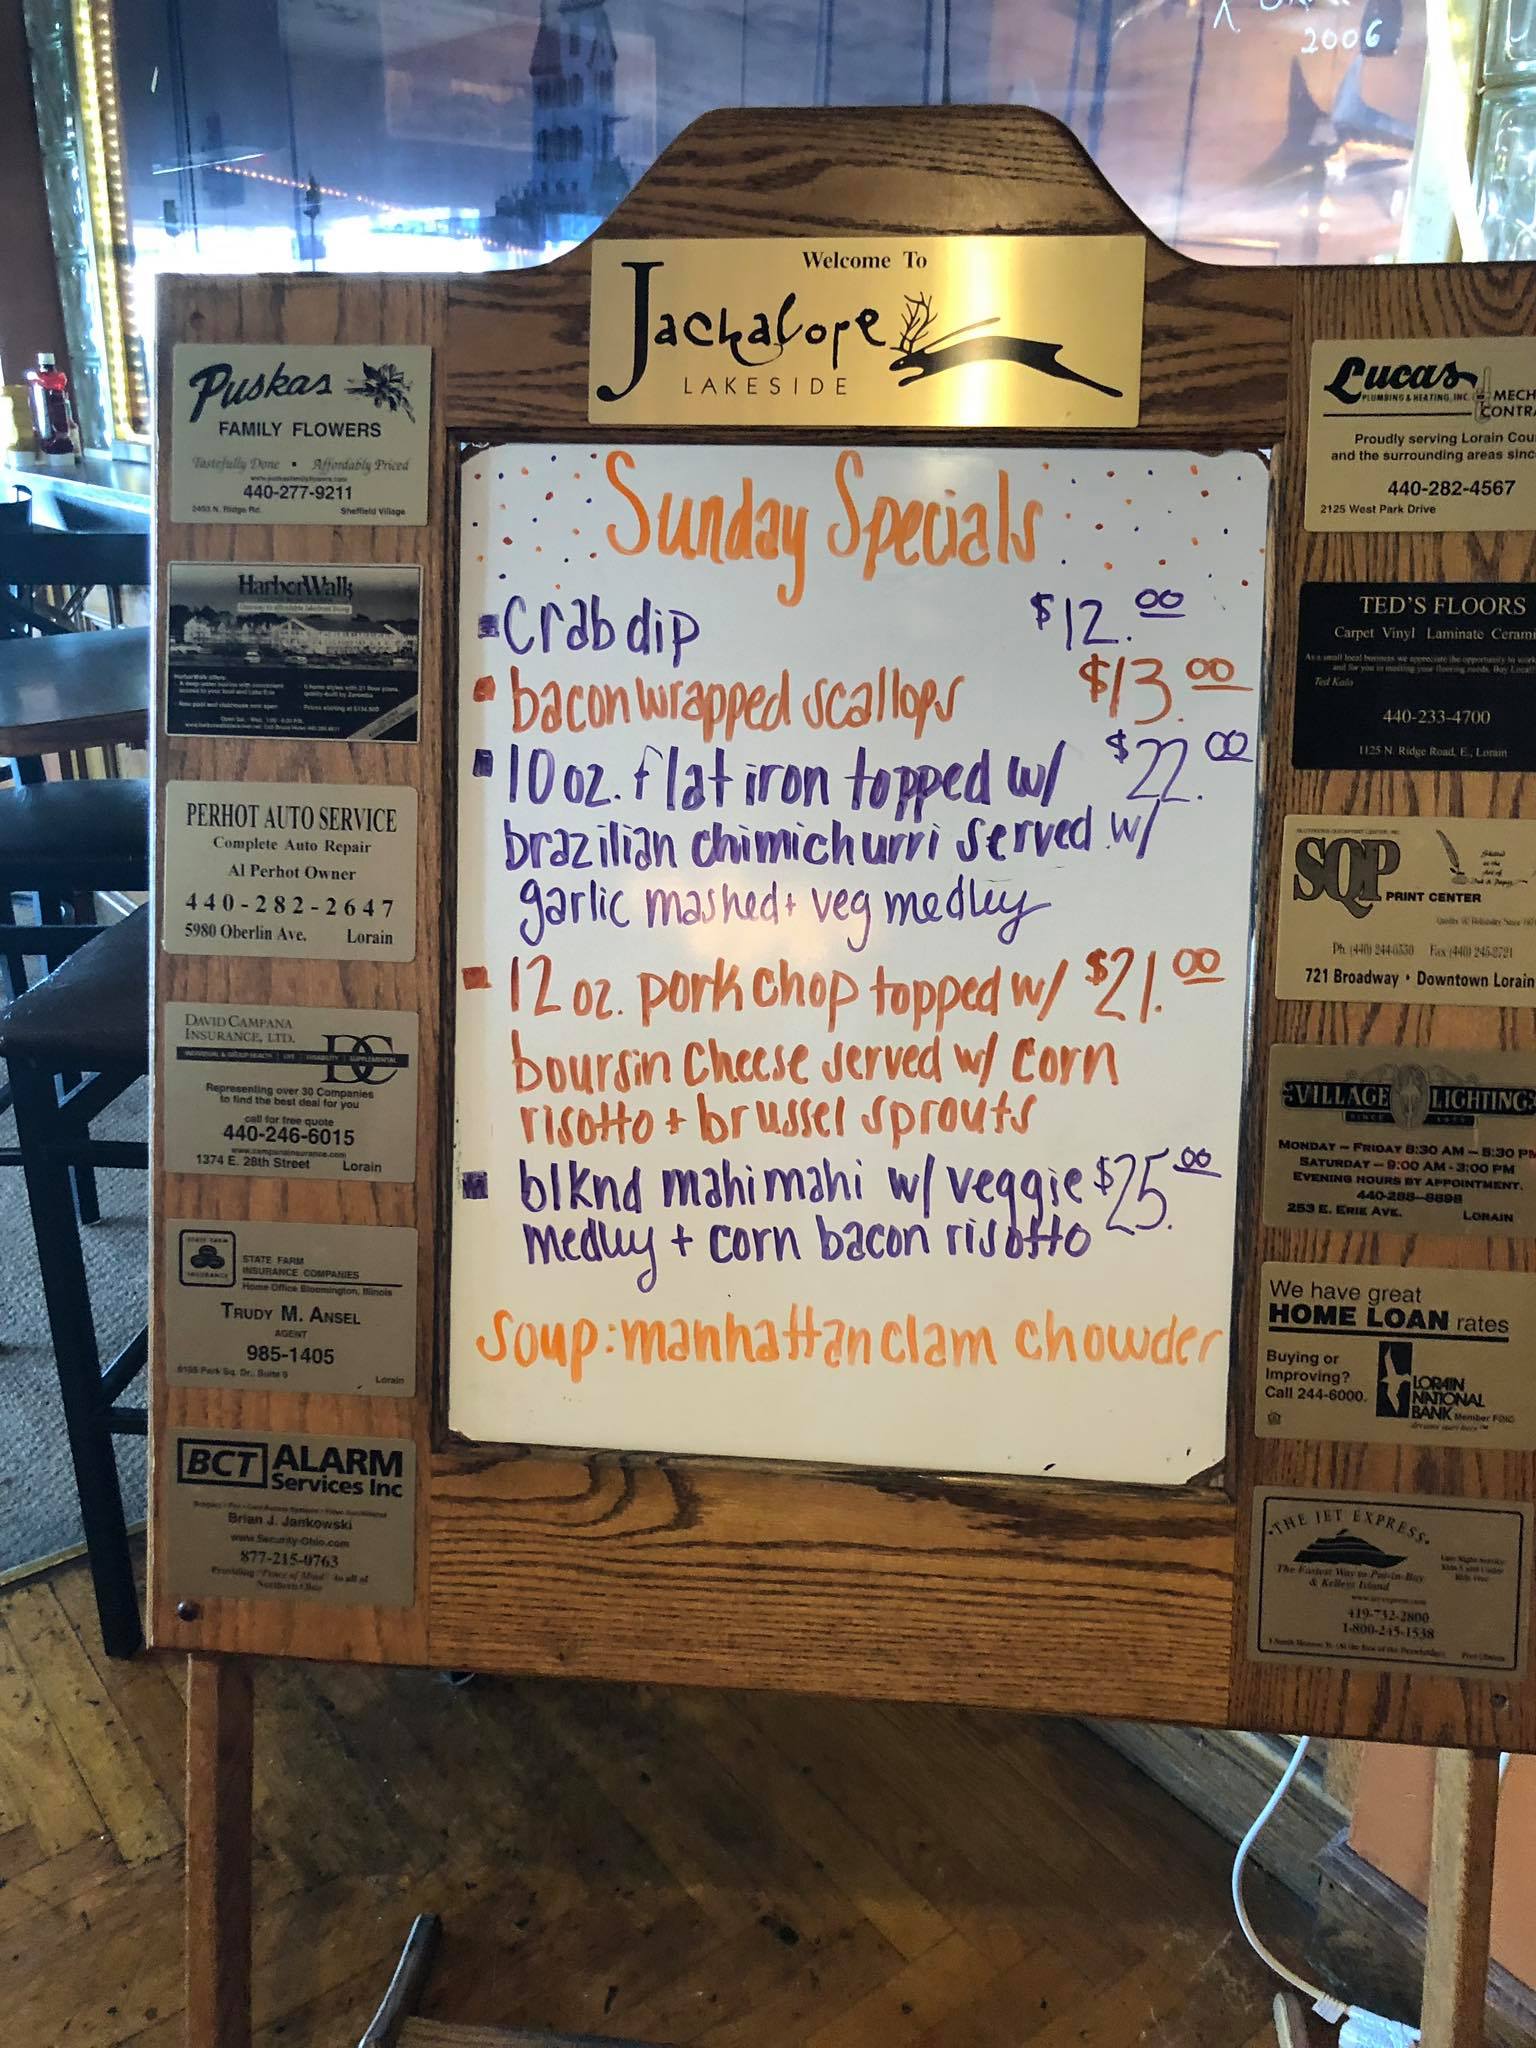 2006
Welcome To
Jackalope
LAKESIDE
Sunday Specials
Crab dip $12.00
bacon wrapped scallops $13.00
10 oz. flat iron topped w/ $22.00
brazilian chimichurri served w/
garlic mashed + veg medley
12 oz. pork chop topped w/ $21.00
boursin cheese served w/ corn
risotto + brussel sprouts
blknd mahi mahi w/ veggie $25.00
medley + corn bacon risotto
soup: manhattan clam chowder
Puskas
FAMILY FLOWERS
Tastefully Done • Affordably Priced
www.puskasfamilyflowers.com
440-277-9211
2493 N. Ridge Rd. Sheffield Village
HarborWalk
HarborWalk offers:
PERHOT AUTO SERVICE
Complete Auto Repair
Al Perhot Owner
440-282-2647
5980 Oberlin Ave. Lorain
DAVID CAMPANA
INSURANCE, LTD.
DC
INDIVIDUAL & GROUP HEALTH | LIFE | DISABILITY | SUPPLEMENTAL
Representing over 30 Companies
to find the best deal for you
call for free quote
440-246-6015
www.campanainsurance.com
1374 E. 28th Street Lorain
STATE FARM
INSURANCE
STATE FARM
INSURANCE COMPANIES
Home Office Bloomington, Illinois
TRUDY M. ANSEL
AGENT
985-1405
Park Sq. Dr., Suite Lorain
BCT ALARM
Services Inc
Brian J. Jankowski
www.Security-Ohio.com
877-215-0763
Providing "Peace of Mind" to all of
Northern Ohio
Lucas
PLUMBING & HEATING, INC. MECH
CONTRA
Proudly serving Lorain Cou
and the surrounding areas sinc
440-282-4567
2125 West Park Drive
TED'S FLOORS
Carpet Vinyl Laminate Ceram
Ted Kalo
440-233-4700
1125 N. Ridge Road, E., Lorain
SQP
PRINT CENTER
Ph. (440) 244-0330 Fax (440) 245-2721
721 Broadway • Downtown Lorain
VILLAGE LIGHTING
SINCE
MONDAY – FRIDAY 8:30 AM – 5:30 PM
SATURDAY – 9:00 AM - 3:00 PM
EVENING HOURS BY APPOINTMENT.
440-288-8898
253 E. ERIE AVE. LORAIN
We have great
HOME LOAN rates
Buying or
Improving?
Call 244-6000.
LORAIN
NATIONAL
BANK Member FDIC
THE JET EXPRESS.
The Fastest Way to Put-in-Bay
& Kelleys Island
419-732-2800
1-800-245-1538
Port Clinton